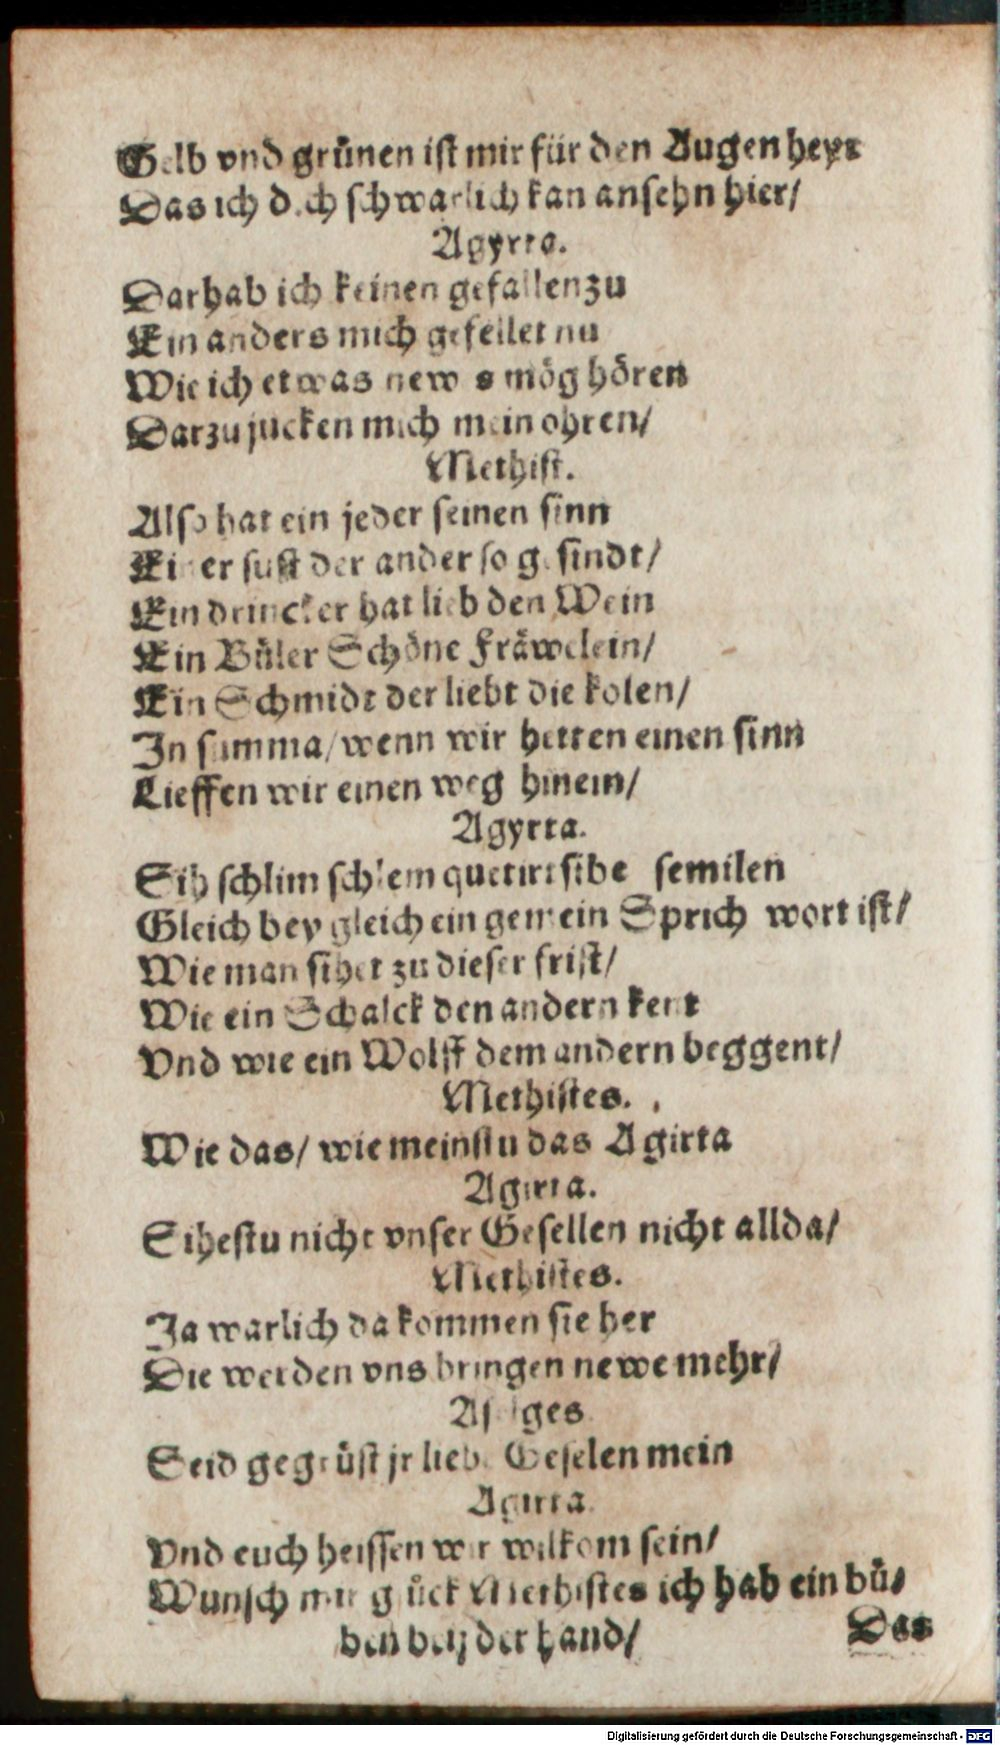 Gelb vnd grünen ist mir für den Augen heyr
Das ich dich schwarlich kan ansehn hier/
Agyrta.
Dar hab ich keinen gefallen zu
Ein anders mich gefellet nu
Wie ich etwas newes mög hören
Darzu jucken mich mein ohren/
Methist.
Also hat ein jeder seinen sinn
Einer sust der ander so gesindt/
Ein drincker hat lieb den Wein
Ein Büler Schöne Fräwelein/
Ein Schmidt der liebt die kolen/
In summa/ wenn wir hetten einen sinn
Lieffen wir einen weg hinein/
Agyrta.
Sih schlim schlem semilen
Gleich bey gleich ein gemein Sprich wort ist/
Wie man sihet zu dieser frist/
Wie ein Schalck den andern kent
Vnd wie ein Wolff dem andern beggent/
Methistes.
Wie das/ wie meinstu das Agirta
Agirta.
Sihestu nicht vnser Gesellen nicht allda/
Methistes.
Ja warlich da kommen sie her
Die werden vns bringen newe mehr/
Seid gegrüst jr liebe Geselen mein
Agirta.
Vnd euch heissen wir wilkom sein/
Wunsch mir glück Methistes ich hab ein bü-
ben bey der hand/
Das
Digitalisierung gefördert durch die Deutsche Forschungsgemeinschaft - DFG